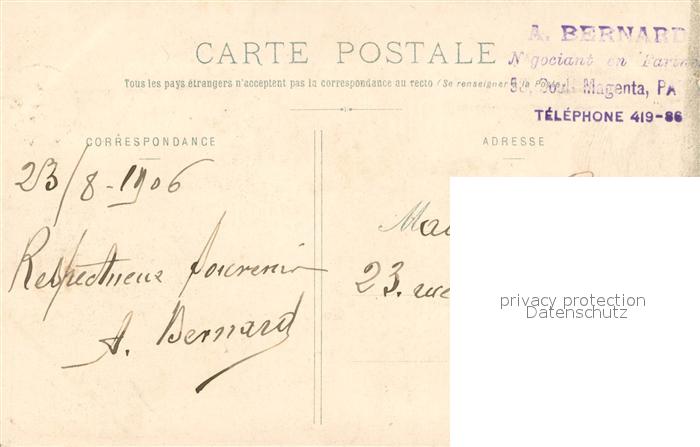 CARTE POSTALE
A. BERNARD
Négociant en Farines
Boul. Magenta, PA
TÉLÉPHONE 419-86
Tous les pays étrangers n'acceptent pas la correspondance au recto (Se renseigner à la Poste)
CORRESPONDANCE
ADRESSE
23/8-1906
Respectueux souvenir
A. Bernard
Mad
23. rue
privacy protection
Datenschutz